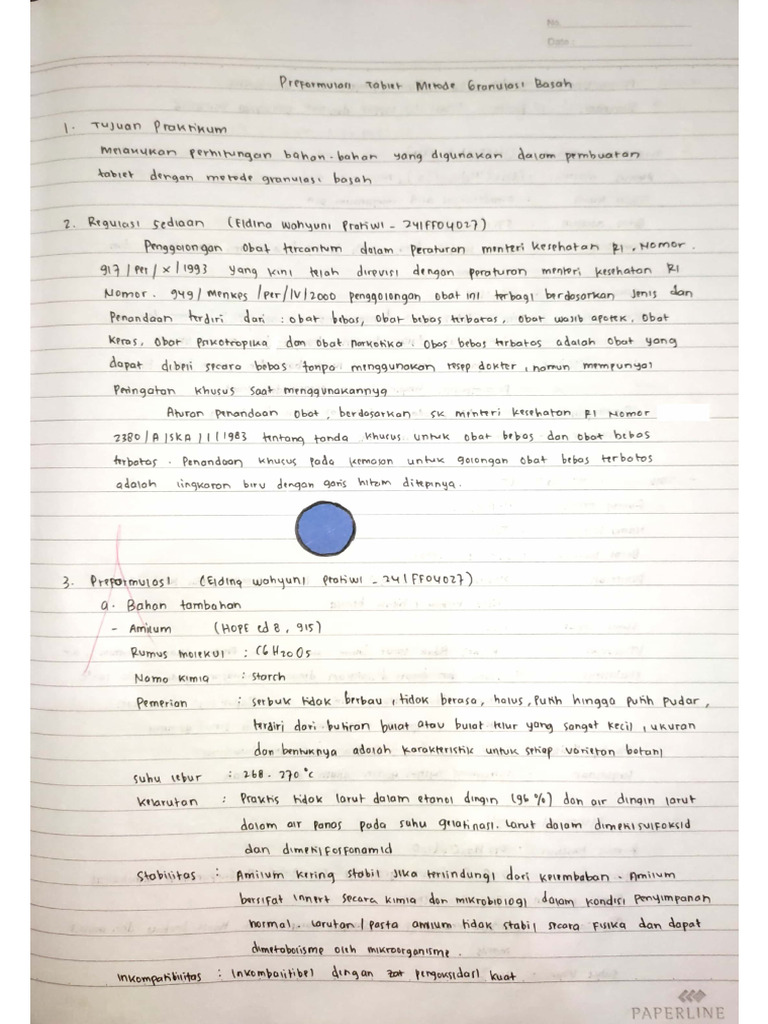 No.
Date :
Preformulan Tablet Metode Granulasi Basah
1. Tujuan Praktikum
Melakukan perhitungan bahan-bahan yang digunakan dalam pembuatan
tablet dengan metode granulasi basah
2. Regulasi Sediaan (Eldina Wahyuni Pratiwi - 241FF04027)
Penggolongan obat tercantum dalam peraturan menteri kesehatan RI, Nomor.
917/Per/X/1993 yang kini telah direvisi dengan peraturan menteri kesehatan RI
Nomor. 949/Menkes/Per/IV/2000 penggolongan obat ini terbagi berdasarkan Jenis dan
Penandaan terdiri dari : obat bebas, obat bebas terbatas, obat wajib apotek, obat
keras, obat psikotropika dan obat narkotika. Obas bebas terbatas adalah obat yang
dapat dibeli secara bebas tanpa menggunakan resep dokter, namun mempunyai
Peringatan khusus saat menggunakannya
Aturan Penandaan Obat, berdasarkan SK menteri kesehatan RI Nomor
2380/A/SKA/I/1983 tentang tanda khusus untuk obat bebas dan obat bebas
terbatas. Penandaan khusus pada kemasan untuk golongan obat bebas terbatas
adalah lingkaran biru dengan garis hitam ditepinya.
3. Preformulasi (Eldina Wahyuni Pratiwi - 241FF04027)
a. Bahan tambahan
- Amilum (HOPE ed 8, 915)
Rumus molekul : C6H20O5
Nama kimia : Starch
Pemerian : serbuk tidak berbau, tidak berasa, halus, putih hingga putih pudar,
terdiri dari butiran bulat atau bulat telur yang sangat kecil, ukuran
dan bentuknya adalah karakteristik untuk setiap varietan botani
Suhu lebur : 268 - 270°C
Kelarutan : Praktis tidak larut dalam etanol dingin (96%) dan air dingin larut
dalam air panas pada suhu gelatinasi. Larut dalam dimetilsulfoksid
dan dimetilfosfonamid
Stabilitas : Amilum kering stabil jika terlindungi dari kelembaban. Amilum
bersifat innert secara kimia dan mikrobiologi dalam kondisi penyimpanan
normal. Larutan/pasta amilum tidak stabil secara fisika dan dapat
dimetabolisme oleh mikroorganisme.
Inkompatibilitas : Inkombalitibel dingan zat pengoksidasi kuat
PAPERLINE